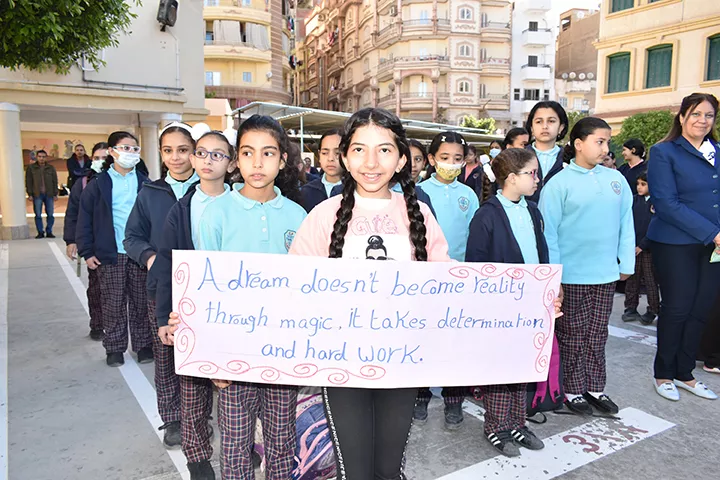 A dream doesn't become reality
through magic. it takes determination
and hard work.